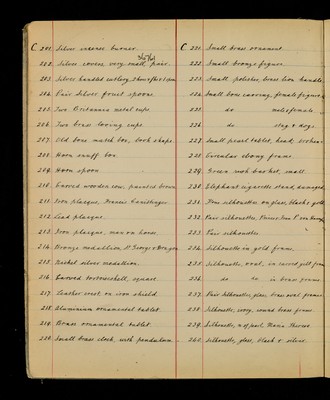 C 201. Silver incense burner.
3/5/61
202. Silver covers very small, pair.
203. Silver handled cutlery,
204. Pair Silver fruit spoons.
205. Two Britannia metal cups.
206. Two brass loving cups.
207. Old bone match box, book shape.
208. Horn snuff box.
209. Horn spoon.
210. Carved wooden cow, painted brown.
211. Iron plaque, Francis
212. Lead plaque.
213. Iron plaque, man on horse.
214. Bronze medallion, St George & Dragon
215. Nickel silver medallion.
216. Carved tortoiseshell, square.
217. Leather crest on iron shield.
218. Aluminium ornamental tablet.
219. Brass ornamental tablet.
220. Small brass clock, with pendulum.
C 221. Small brass ornament.
222. Small bronze figure.
223. Small polished, brass lion handle
224. Small bone carving, female figure
225. do male & female
226. do stag & dogs.
227. Small pearl tablet, head,
228. Circular ebony frame
229. Green rush basket, small.
230. Elephant cigarette stand, damaged
231. Four silhouettes on glass, black & gold
232. Pair silhouettes,
233. Pair silhouettes
234. Silhouette in gold frame.
235. Silhouette, oval, in carved gilt frame
236. do do in brass frame
237. Pair Silhouettes, glass, brass oval frames
238. Silhouette, ivory, round brass frame
239. Silhouette, Maria Theresa
240. Silhouette, glass, black & silver.